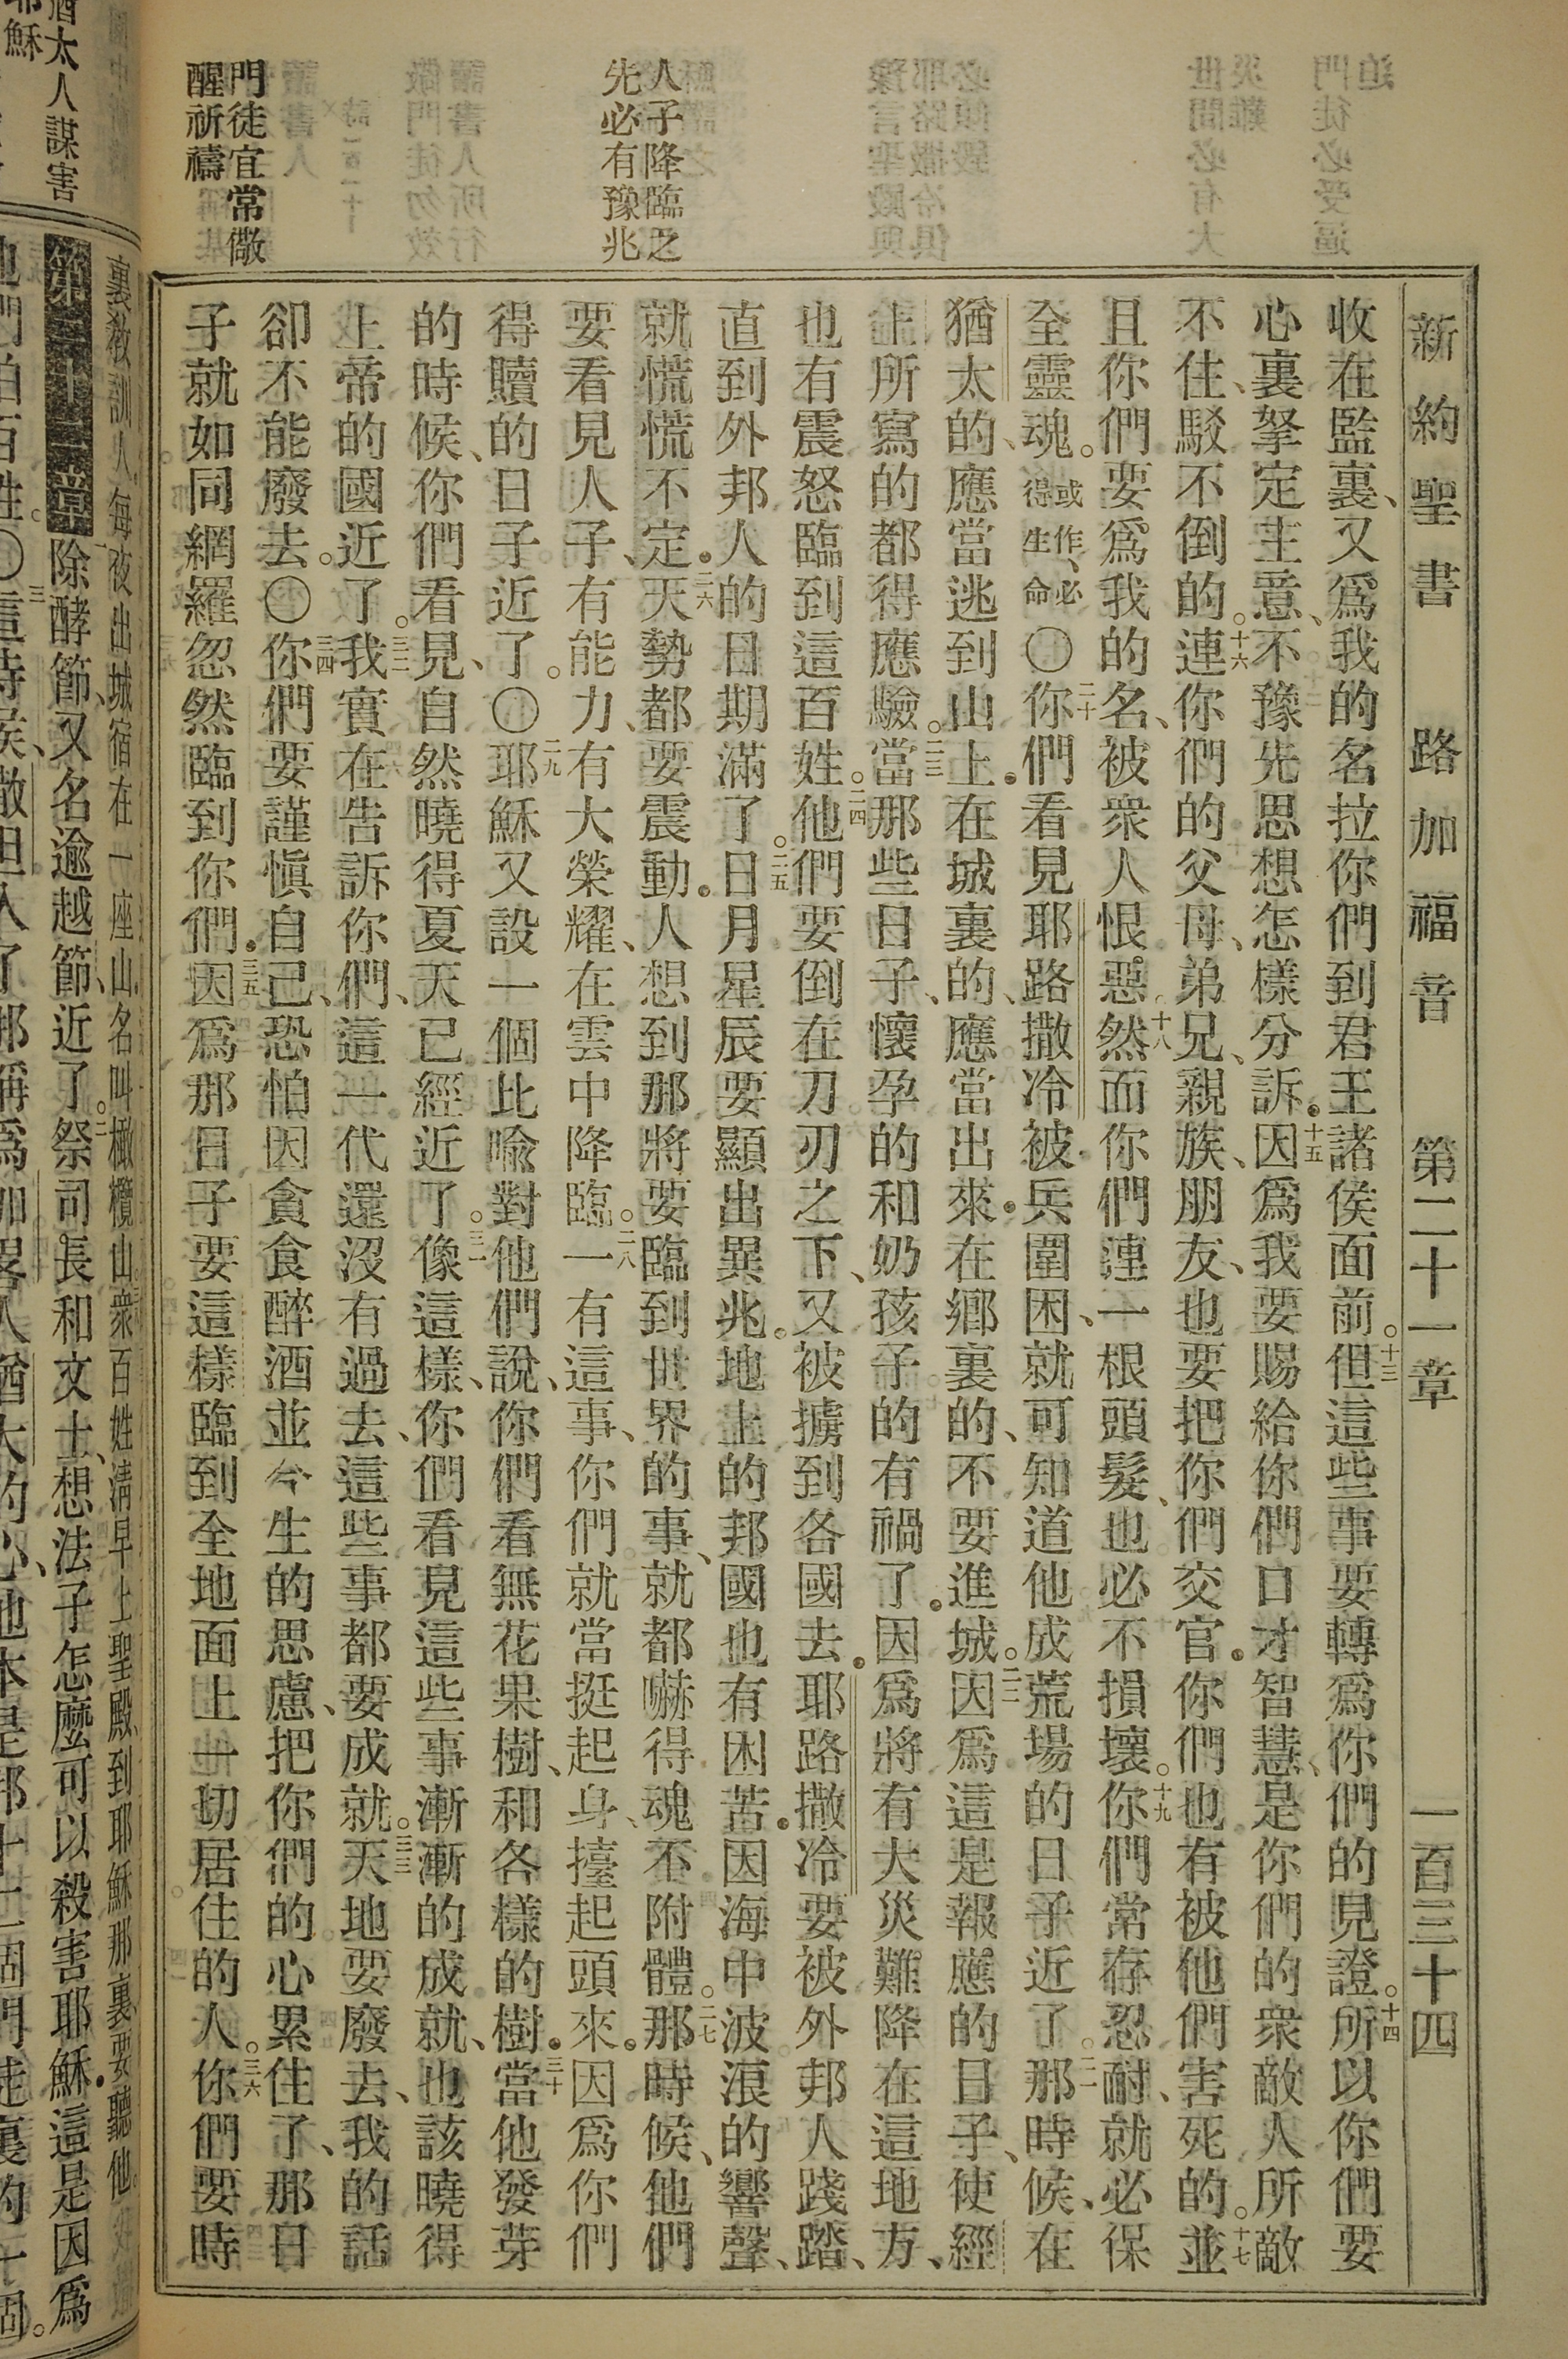 新約聖書 路加福音 第二十一章 一百三十四
人子降臨之
先必有豫兆
門徒宜常儆
醒祈禱
收在監裏、又爲我的名拉你們到君王諸侯面前。十三但這些事要轉爲你們的見證。十四所以你們要
心裏拏定主意、不豫先思想怎樣分訴.十五因爲我要賜給你們口才智慧、是你們的衆敵人所敵
不住、駁不倒的。十六連你們的父母、弟兄、親族、朋友、也要把你們交官.你們也有被他們害死的。十七並
且你們要爲我的名、被衆人恨惡。十八然而你們連一根頭髮、也必不損壞。十九你們常存忍耐、就必保
全靈魂。或作、必得生命〇二十你們看見耶路撒冷被兵圍困、就可知道他成荒場的日子近了。二一那時候、在
猶太的、應當逃到山上.在城裏的、應當出來.在鄉裏的、不要進城。二二因爲這是報應的日子、使經
上所寫的都得應驗。二三當那些日子、懷孕的和奶孩子的有禍了.因爲將有大災難降在這地方、
也有震怒臨到這百姓。二四他們要倒在刀刃之下、又被擄到各國去.耶路撒冷要被外邦人踐踏、
直到外邦人的日期滿了。二五日月星辰要顯出異兆。地上的邦國也有困苦.因海中波浪的響聲、
就慌慌不定.二六天勢都要震動.人想到那將要臨到世界的事、就都嚇得魂不附體。二七那時候、他們
要看見人子、有能力、有大榮耀、在雲中降臨。二八一有這事、你們就當挺起身、擡起頭來.因爲你們
得贖的日子近了。〇二九耶穌又設一個此喩對他們說、你們看無花果樹、和各樣的樹.三十當他發芽
的時候、你們看見、自然曉得夏天已經近了。三一像這樣、你們看見這些事漸漸的成就、也該曉得
上帝的國近了。三二我實在告訴你們、這一代還沒有過去、這些事都要成就。三三天地要廢去、我的話
卻不能廢去。〇三四你們要謹愼自己、恐怕因貪食醉酒並今生的思慮、把你們的心累住了、那日
子就如同網羅忽然臨到你們.三五因爲那日子要這樣臨到全地面上一切居住的人。三六你們要時
太人謀害
裏教訓人、每夜出城宿在一座山名叫橄欖山衆百姓淸早上聖殿、到耶穌那裏要聽他
第二十二章除酵節、又名逾越節、近了。二祭司長和文士、想法子怎麼可以殺害耶穌.這是因爲